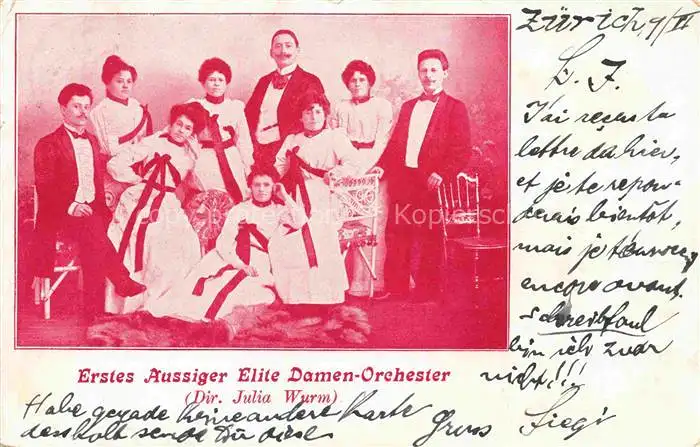 Zürich, 9/II
L. J.
J'ai reçu ta
lettre da hier,
et je te repon-
derais bientôt,
mais je t'envoy
encore avant.
Schreibfaul
bin ich zwar
nicht!!!
Erstes Aussiger Elite Damen-Orchester
(Dir. Julia Wurm)
Habe gerade keine andere Karte
deshalb sende Dir diese
Gruss Siegi